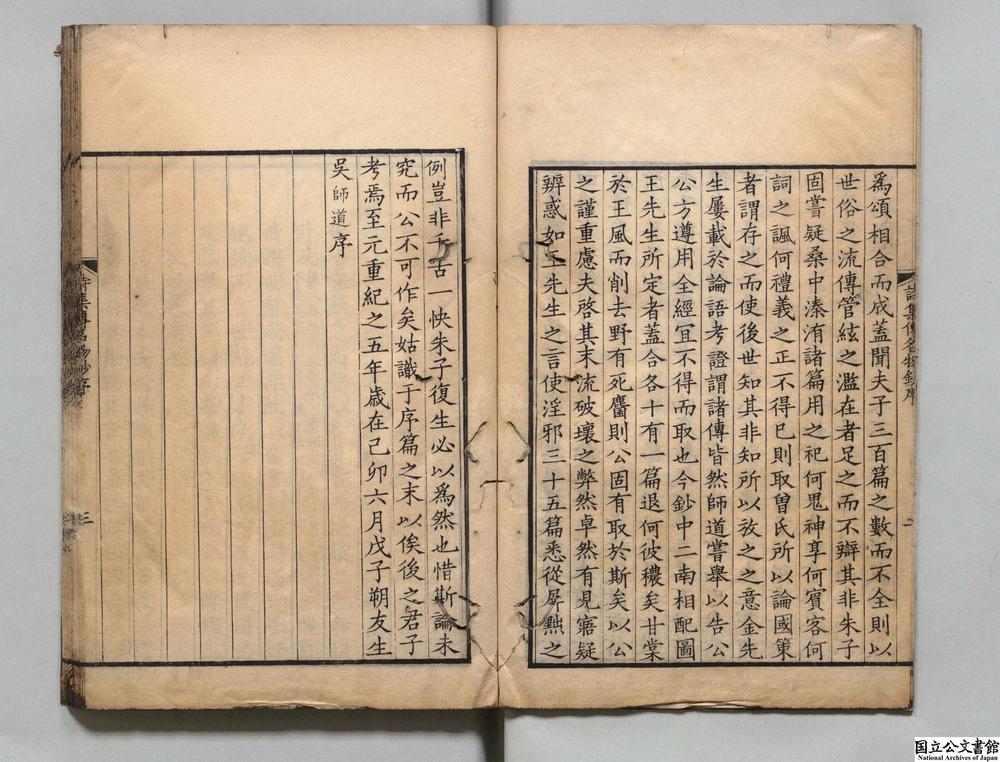 爲頌相合而成蓋聞夫子三百篇之數而不全則以
世俗之流傳管絃之濫在者足之而不辯其非朱子
固嘗疑桑中溱洧諸篇用之祀何鬼神享何賓客何
詞之諷何禮義之正不得已則取曽氏所以論國策
者謂存之而使後世知其非知所以放之之意金先
生屢載於論語考證謂諸傳皆然師道嘗舉以告公
公方遵用全經冝不得而取也今鈔中二南相配圖
王先生所定者蓋合各十有一篇退何彼穠矣甘棠
於王風而削去野有死麕則公固有取於斯矣以公
之謹重慮夫啓其末流破壞之弊然卓然有見寤疑
辨惑如王先生之言使淫邪三十五篇悉從屏黜之
詩集傳名物鈔序
二
例豈非千古一快朱子復生必以爲然也惜斯論未
究而公不可作矣姑識于序篇之末以俟後之君子
考焉至元重紀之五年歳在己卯六月戊子朔友生
吳師道序
詩集傳名物鈔序
三
国立公文書館
National Archives of Japan